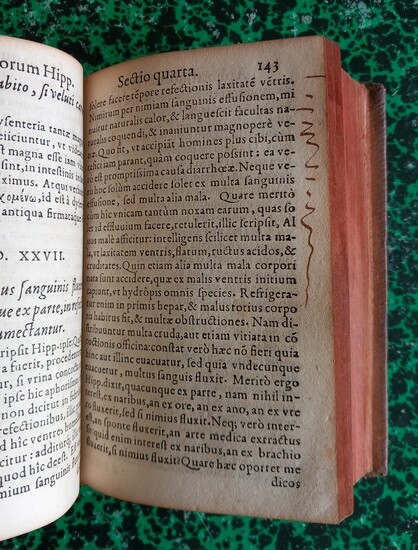 orum Hipp.
abito, si veluti ca
ysenteria tantæ ma
eiiciuntur, vt vt
st magna esse iam v
dum, in intestinis in
ximus. Atqui verb
χομένω, id est à d
antiqua firmataque
O. XXVII.
us sanguinis flux
que ex parte, in reste
mectantur.
ripsit Hipp. ipse Qu
a fuerit, proceden
r, si vrina conci
ipse hic aphoris
non dicitur in
refectionibus, il
hic ventres hum
icitur: additur
d hic deest. I
nimium sanguinis
Sectio quarta. 143
solere facere tẽpore refectionis laxitatẽ vẽtris.
Nimirum per nimiam sanguinis effusionem, mi
nuitur naturalis calor, & languescit facultas na
turalis coquendi, & inaniuntur magnopere ve
næ. Quo fit, vt accipiãt homines plus cibi, cùm
reficiam parant, quàm coquere possint: ea ve-
rò est promptissima causa diarrhœæ. Neque ve-
rò hoc solùm accidere solet ex multa sanguinis
effusione, sed multa alia mala. Quare meritò
cùm hîc vnicam tantùm noxam earum, quas so
let id effluuium facere, retulerit, illîc scripsit, Al
uus malè afficitur: intelligens scilicet multa ma
la, vt laxitatem ventris, flatum, ructus acidos, &
cruditates. Quin etiam alia multa mala corpori
vniuersi tota dantur, quæ ex malis ventris initium
capiunt, vt hydropis omnis species. Refrigera-
tur enim in primis hepar, & malus totius corpo
ris habitus fit, & multæ obstructiones. Nam di-
stribuitur multa cruda, aut etiam vitiata in cõ
coctionis officina: constat verò hæc nõ fieri quia
hinc aut illinc euacuatur, sed quia vndecunque
euacuetur, multus sanguis fluxit. Meritò ergo
Hipp. dixit, quacunque ex parte, nam nihil in-
terest, ex naribus, an ex ore, an ex ano, an ex vre
tro fluxerit, sed si nimius fluxit. Neq; verò inter-
est, an sponte fluxerit, an arte medica extractus
sit: quid enim interest ex naribus, an ex brachio
fluxerit, si nimius fluxit? Quare hæc oportet me
dicos